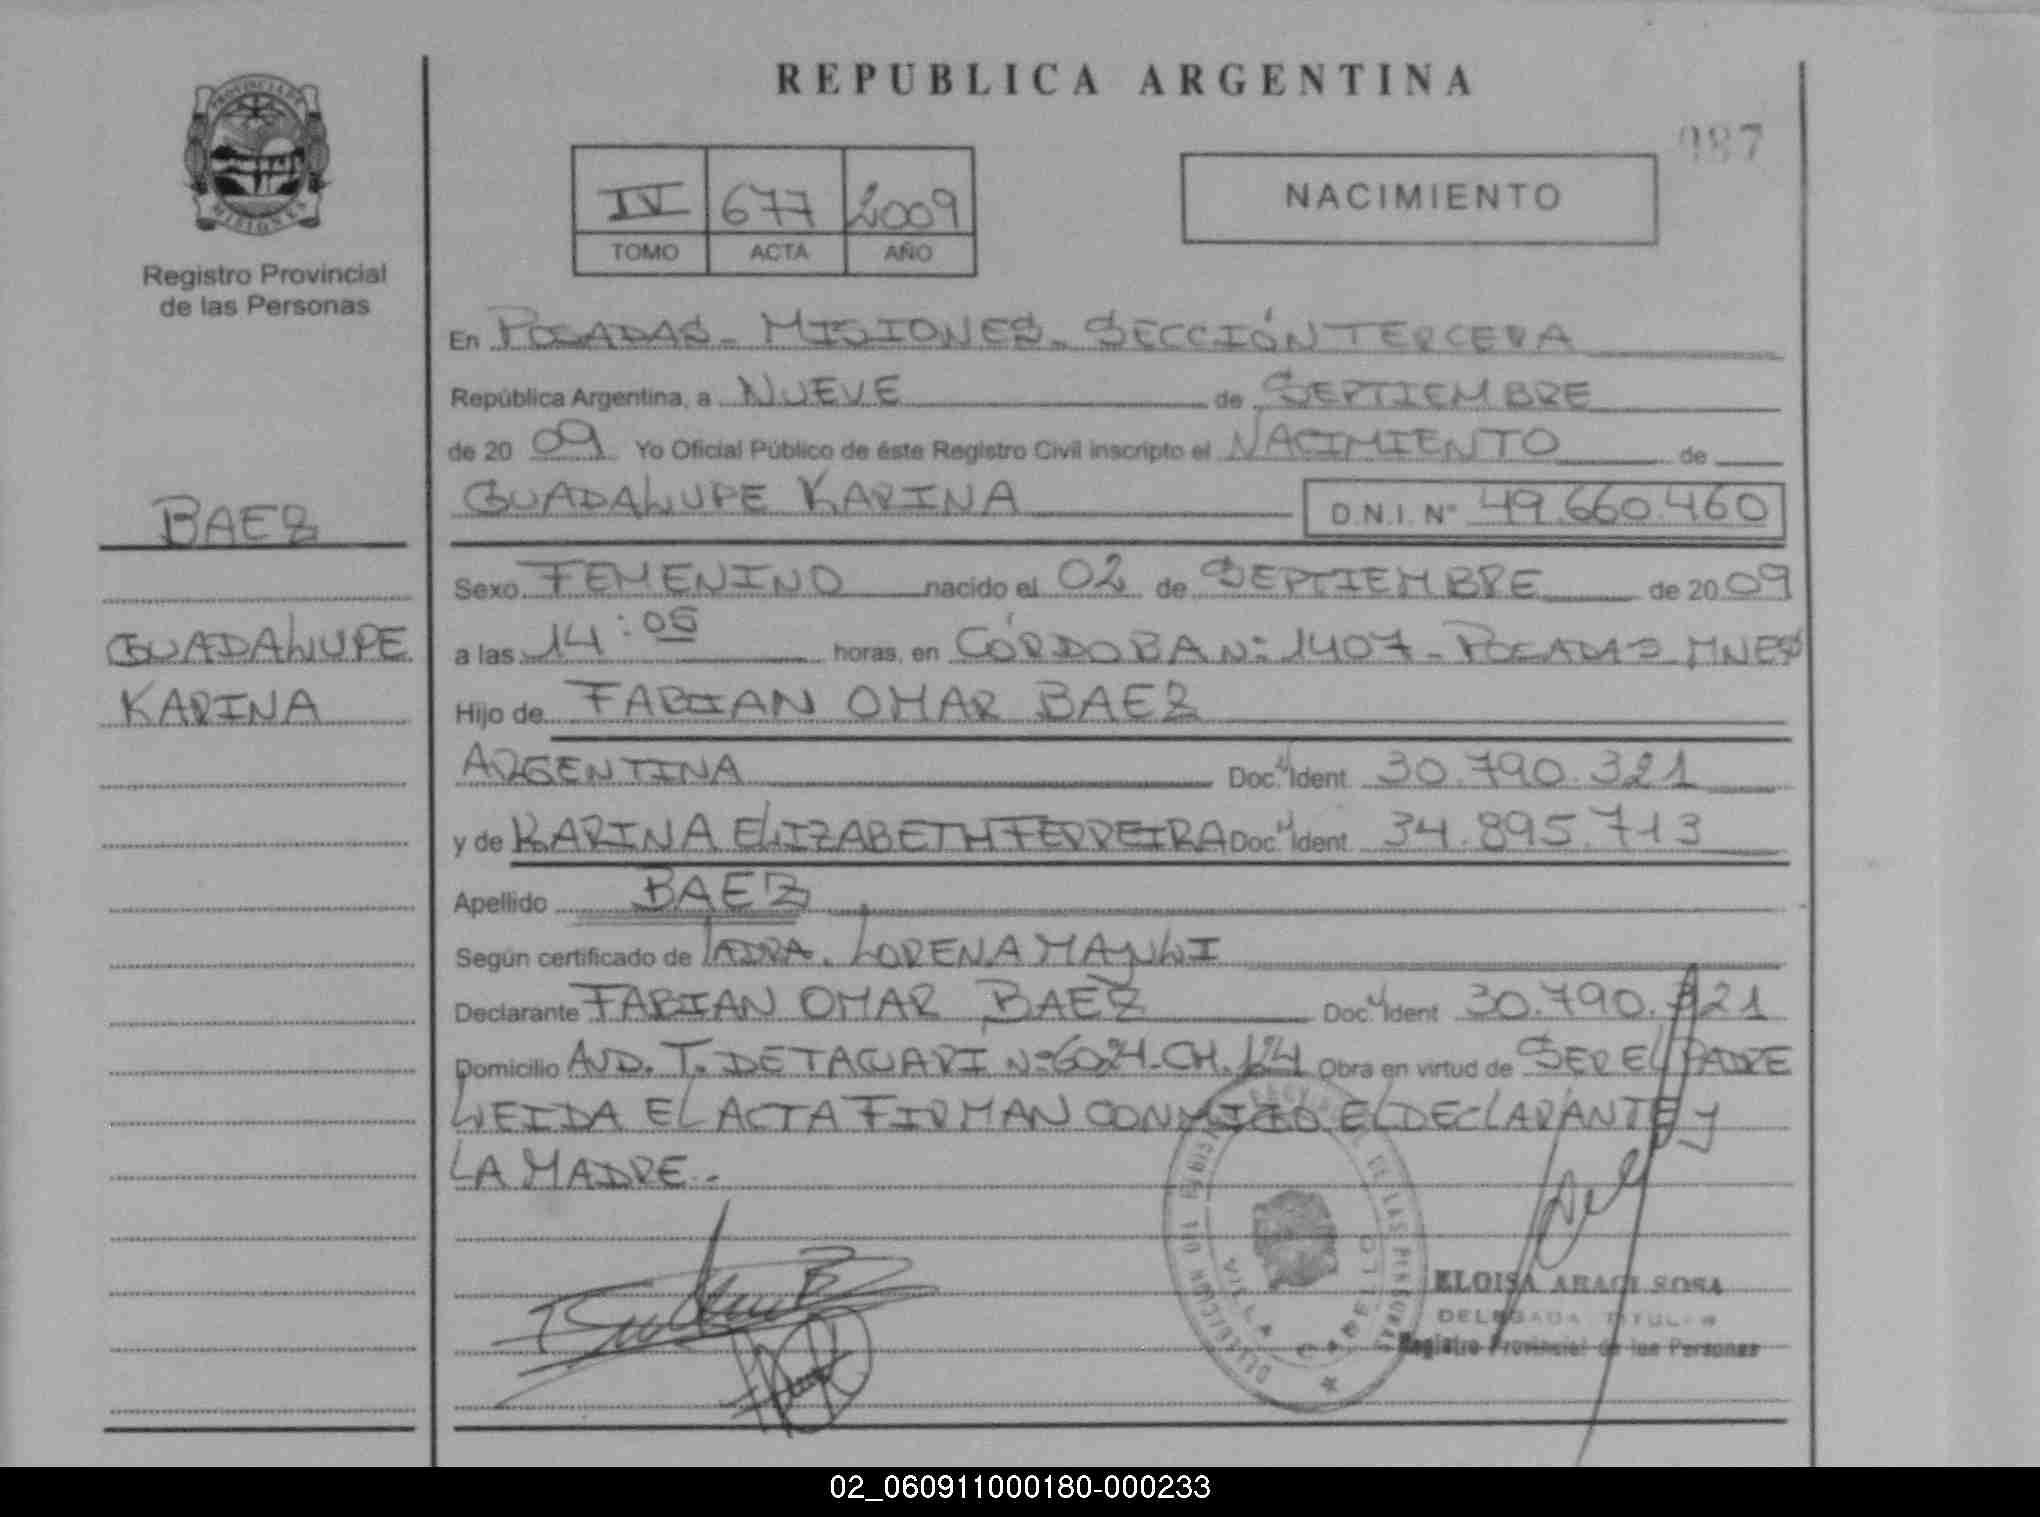 REPUBLICA ARGENTINA
PROVINCIA DE
MISIONES
Registro Provincial
de las Personas
987
IV 677 2009
TOMO ACTA AÑO
NACIMIENTO
En POSADAS - MISIONES - SECCIÓN TERCERA
República Argentina, a NUEVE de SEPTIEMBRE
de 2009 Yo Oficial Público de éste Registro Civil inscripto el NACIMIENTO de
GUADALUPE KARINA D.N.I. Nº 49.660.460
BAEZ
GUADALUPE
KARINA
Sexo FEMENINO nacido el 02 de SEPTIEMBRE de 2009
a las 14:05 horas, en CÓRDOBA Nº 1407 - POSADAS MNES
Hijo de FABIAN OMAR BAEZ
ARGENTINA Doc. Ident. 30.790.321
y de KARINA ELIZABETH FERREIRA Doc. Ident. 34.895.713
Apellido BAEZ
Según certificado de LA DRA. LORENA
Declarante FABIAN OMAR BAEZ Doc. Ident 30.790.321
Domicilio AVD. T. DE TACUARI Nº 6021 - CH. 124 Obra en virtud de SER EL PADRE
LEIDA EL ACTA FIRMAN CONMIGO EL DECLARANTE Y
LA MADRE.-
DELEGACION DEL REGISTRO PROVINCIAL DE LAS PERSONAS
VILLA CABELLO
ELOISA ARACI SOSA
DELEGADA TITULAR
Registro Provincial de las Personas
02_060911000180-000233